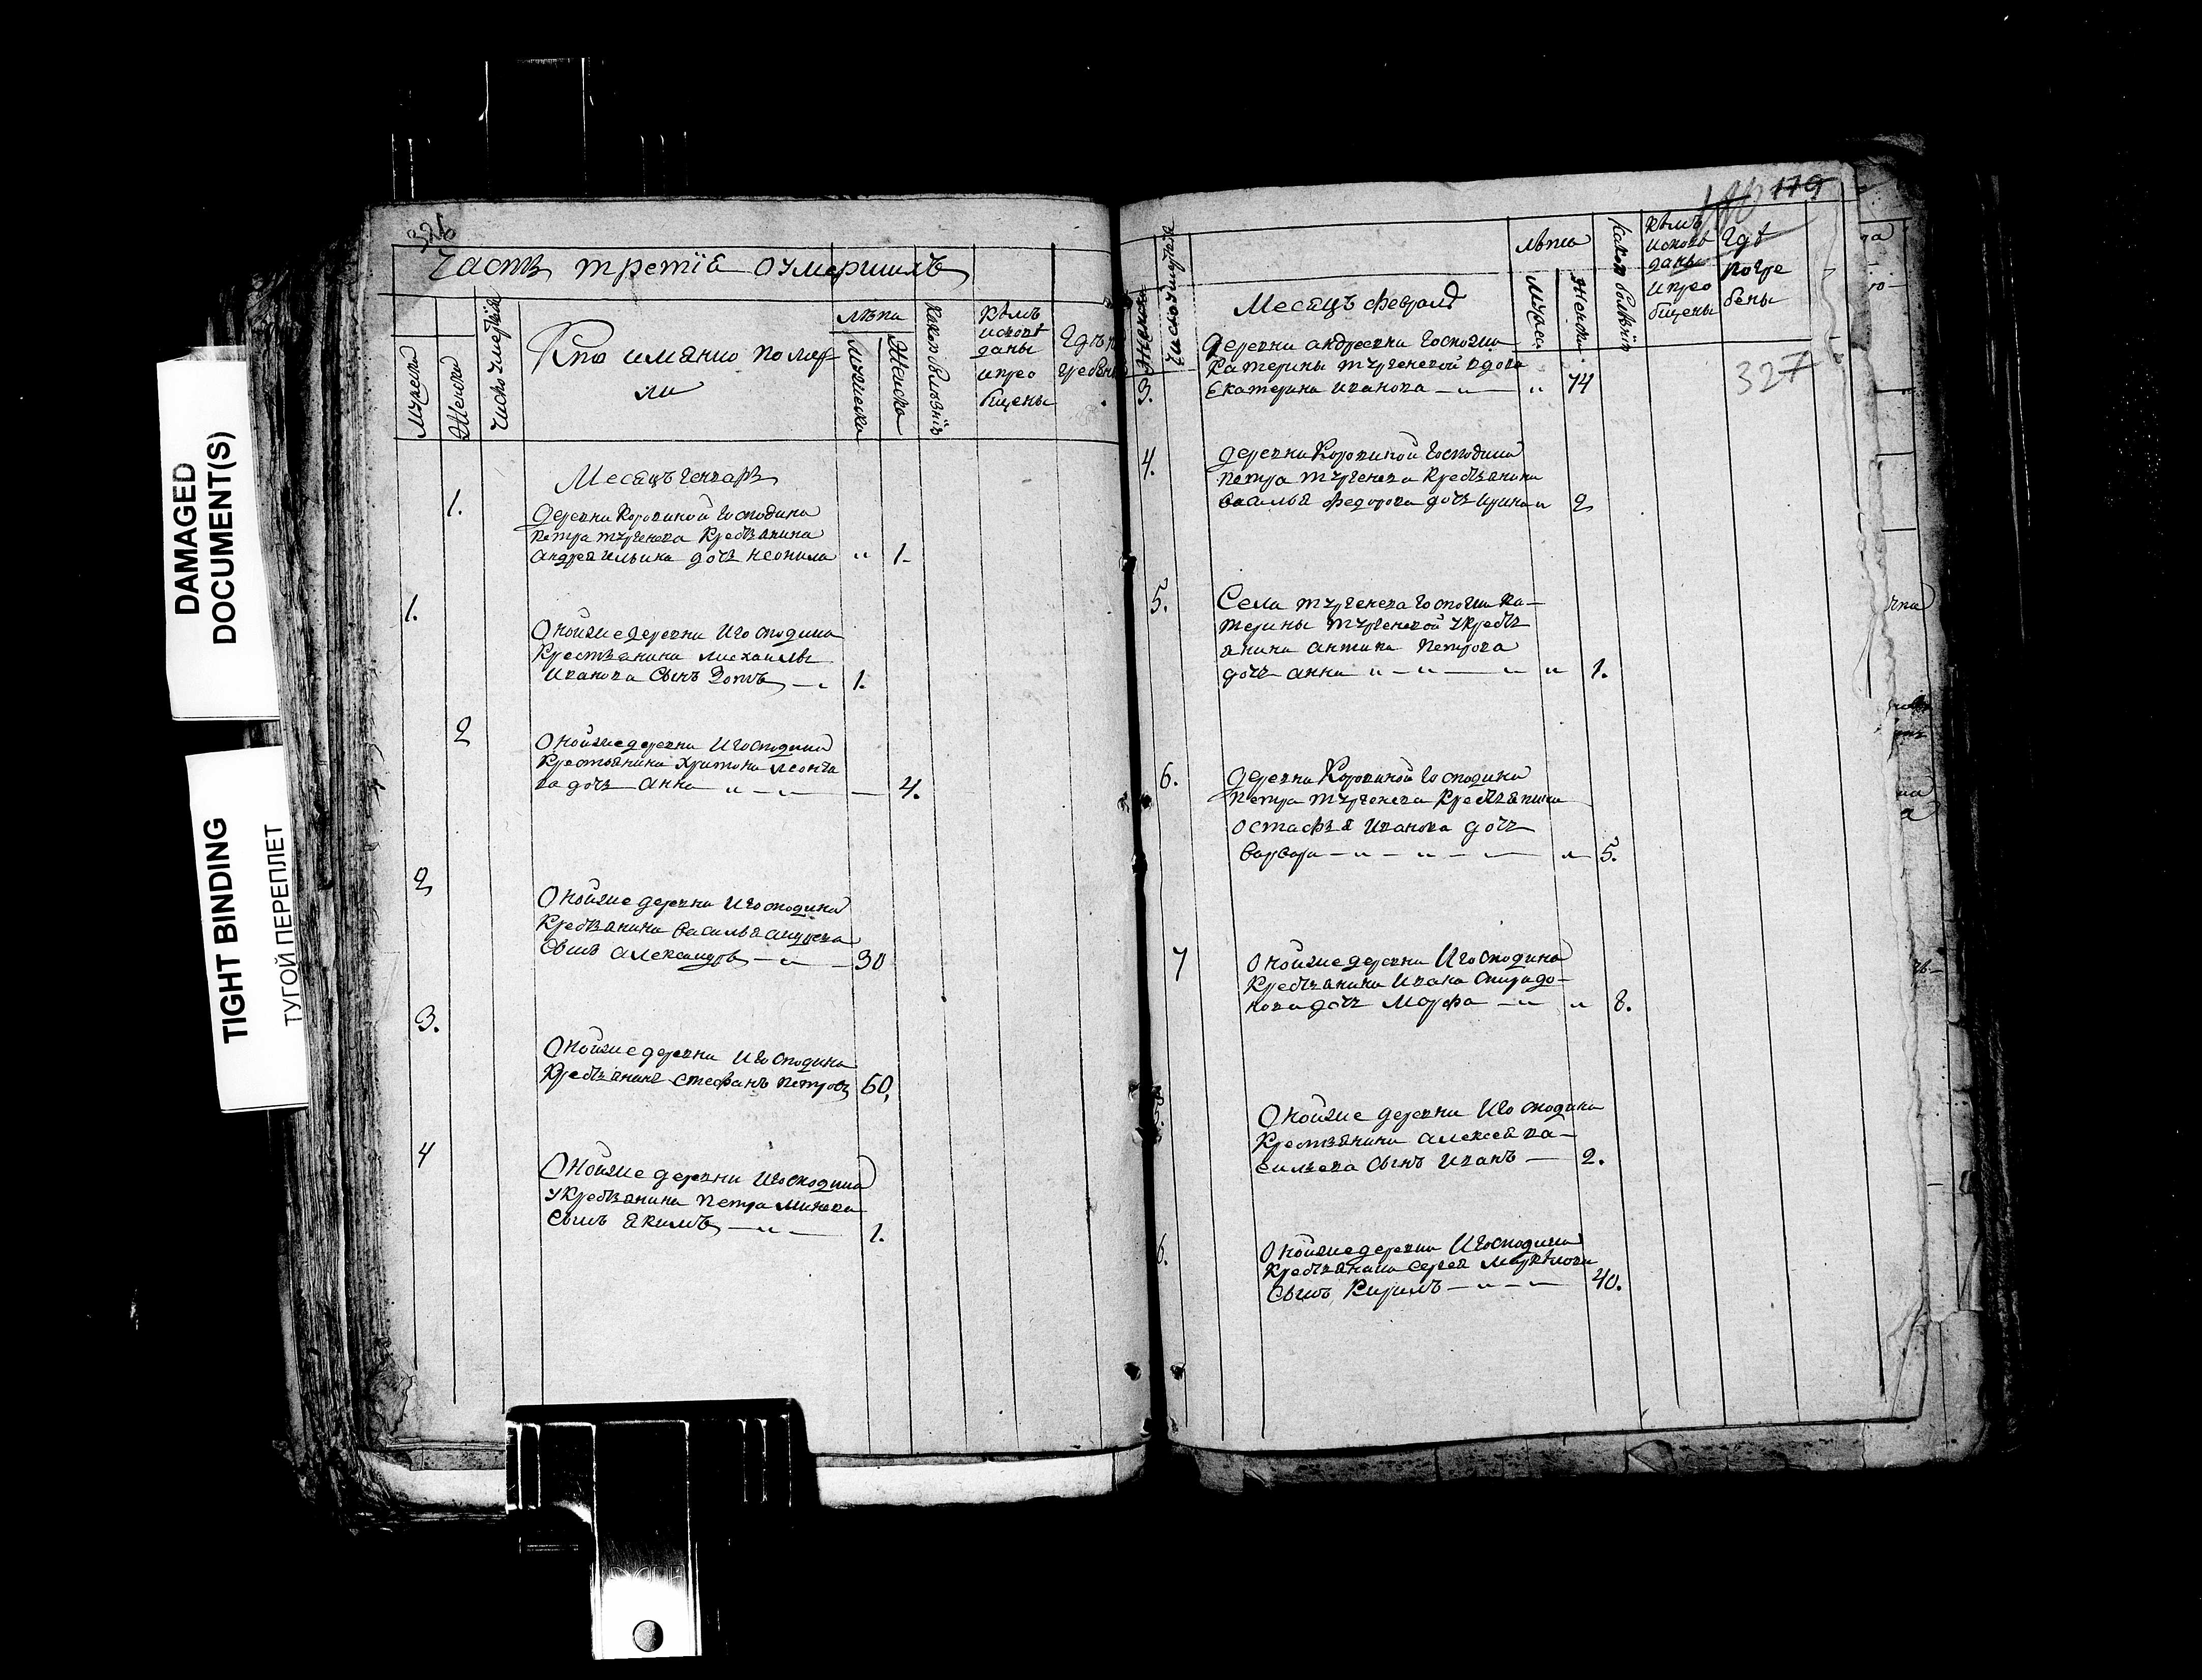 DAMAGED
DOCUMENT(S)
TIGHT BINDING
ТУГОЙ ПЕРЕПЛЕТ
326
Часть третïя оумершихъ
Мужеска
Женска
Число умертвïя
Кто имянно помер
ли
лѣта
Мужеска
Женска
Какою болезнïю
кѣмъ
исповѣ
даны
и прео
бщены
Гдѣ п
гребены
Месяцъ генварь
1.
Деревни Коровиной Господина
Петра тургенева Крестьянина
Андрея ильина дочь неонила " 1.
1.
Оной же деревни и Господина
Крестьянина михаилы
Иванова сынъ Зотъ 1.
2
Оной же деревни и Господина
Крестьянина Харитона леонтье
ва дочь анна 4.
2
Оной же деревни и Господина
Крестьянина василья андреева
сынъ александръ 30
3.
Оной же деревни и Господина
Крестьянинъ стефанъ петровъ 60.
4
Оной же деревни и Господина
у крестьянина петра минева
сынъ якимъ 1.
179
Женска
Число умертвïя
Месяцъ февраль
лѣта
Мужеска
Женска
Какою болезнïю
кѣмъ
исповѣ
даны
и прео
бщены
Гдѣ
погре
бены
327
3.
Деревни андреевки Госпожи
Катерины тургеневой вдова
Екатерина иванова " 74
4.
Деревни Коровиной Господина
петра тургенева крестьянина
василья федорова дочь ирина " 2
5.
Села тургенева Госпожи ка-
терины тургеневой у кресть
янина антипа петрова
дочь анна " 1.
6.
Деревни Коровиной Господина
петра тургенева крестьянина
остафья иванова дочь
варвара " 5.
7
Оной же деревни и Господина
Крестьянина ивана спиридо-
нова дочь марфа " 8.
Оной же деревни и Господина
Крестьянина алексея ва-
сильева сынъ иванъ 2.
6.
Оной же деревни и Господина
крестьянина сергея
сынъ Кирилъ 40.